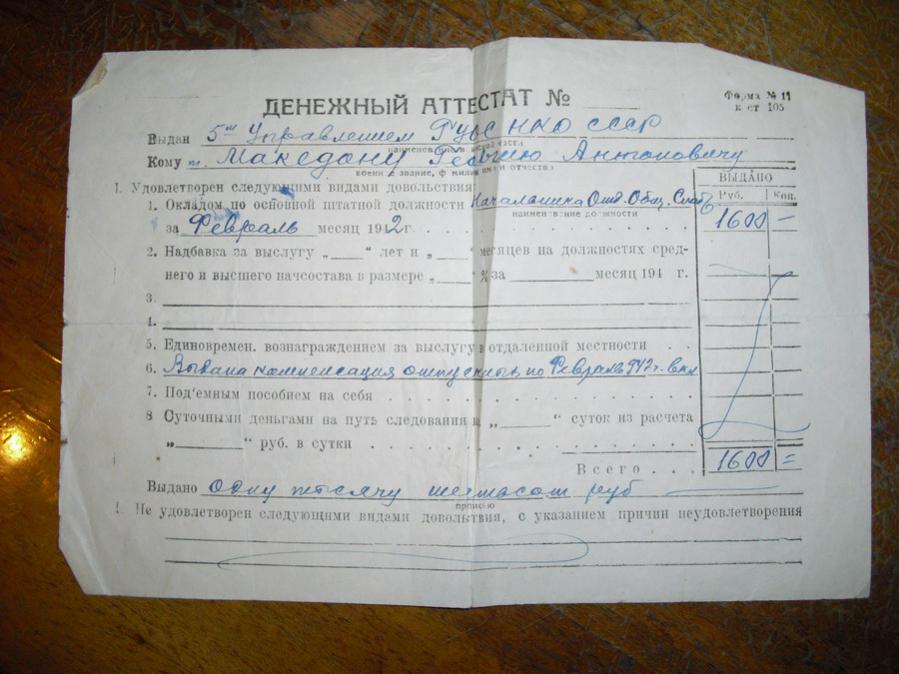 ДЕНЕЖНЫЙ АТТЕСТАТ №
Форма № 11
к ст 105
Выдан 5м Управлением НКО СССР
наименование воинской части
Кому т. Македону Георгию Антоновичу
воен. звание, фамилия имя и отчество
1. Удовлетворен следующими видами довольствия:
ВЫДАНО
Руб. Коп.
1. Окладом по основной штатной должности Начальника Отд. Общ. Снаб
наименование должности
за Февраль месяц 1942 г. 1600 —
2. Надбавка за выслугу „ “ лет и „ “ месяцев на должностях сред-
него и высшего начсостава в размере „ “ % за месяц 194 г.
3.
4.
5. Единовремен. вознаграждением за выслугу в отдаленной местности
6. Выдана компенсация отпускных по Февраль 942 г. вкл
7. Под'емным пособием на себя
8 Суточными деньгами на путь следования на „ “ суток из расчета
„ “ руб. в сутки
Всего 1600 =
Выдано Одну тысячу шестьсот руб
прописью
Не удовлетворен следующими видами довольствия, с указанием причин неудовлетворения